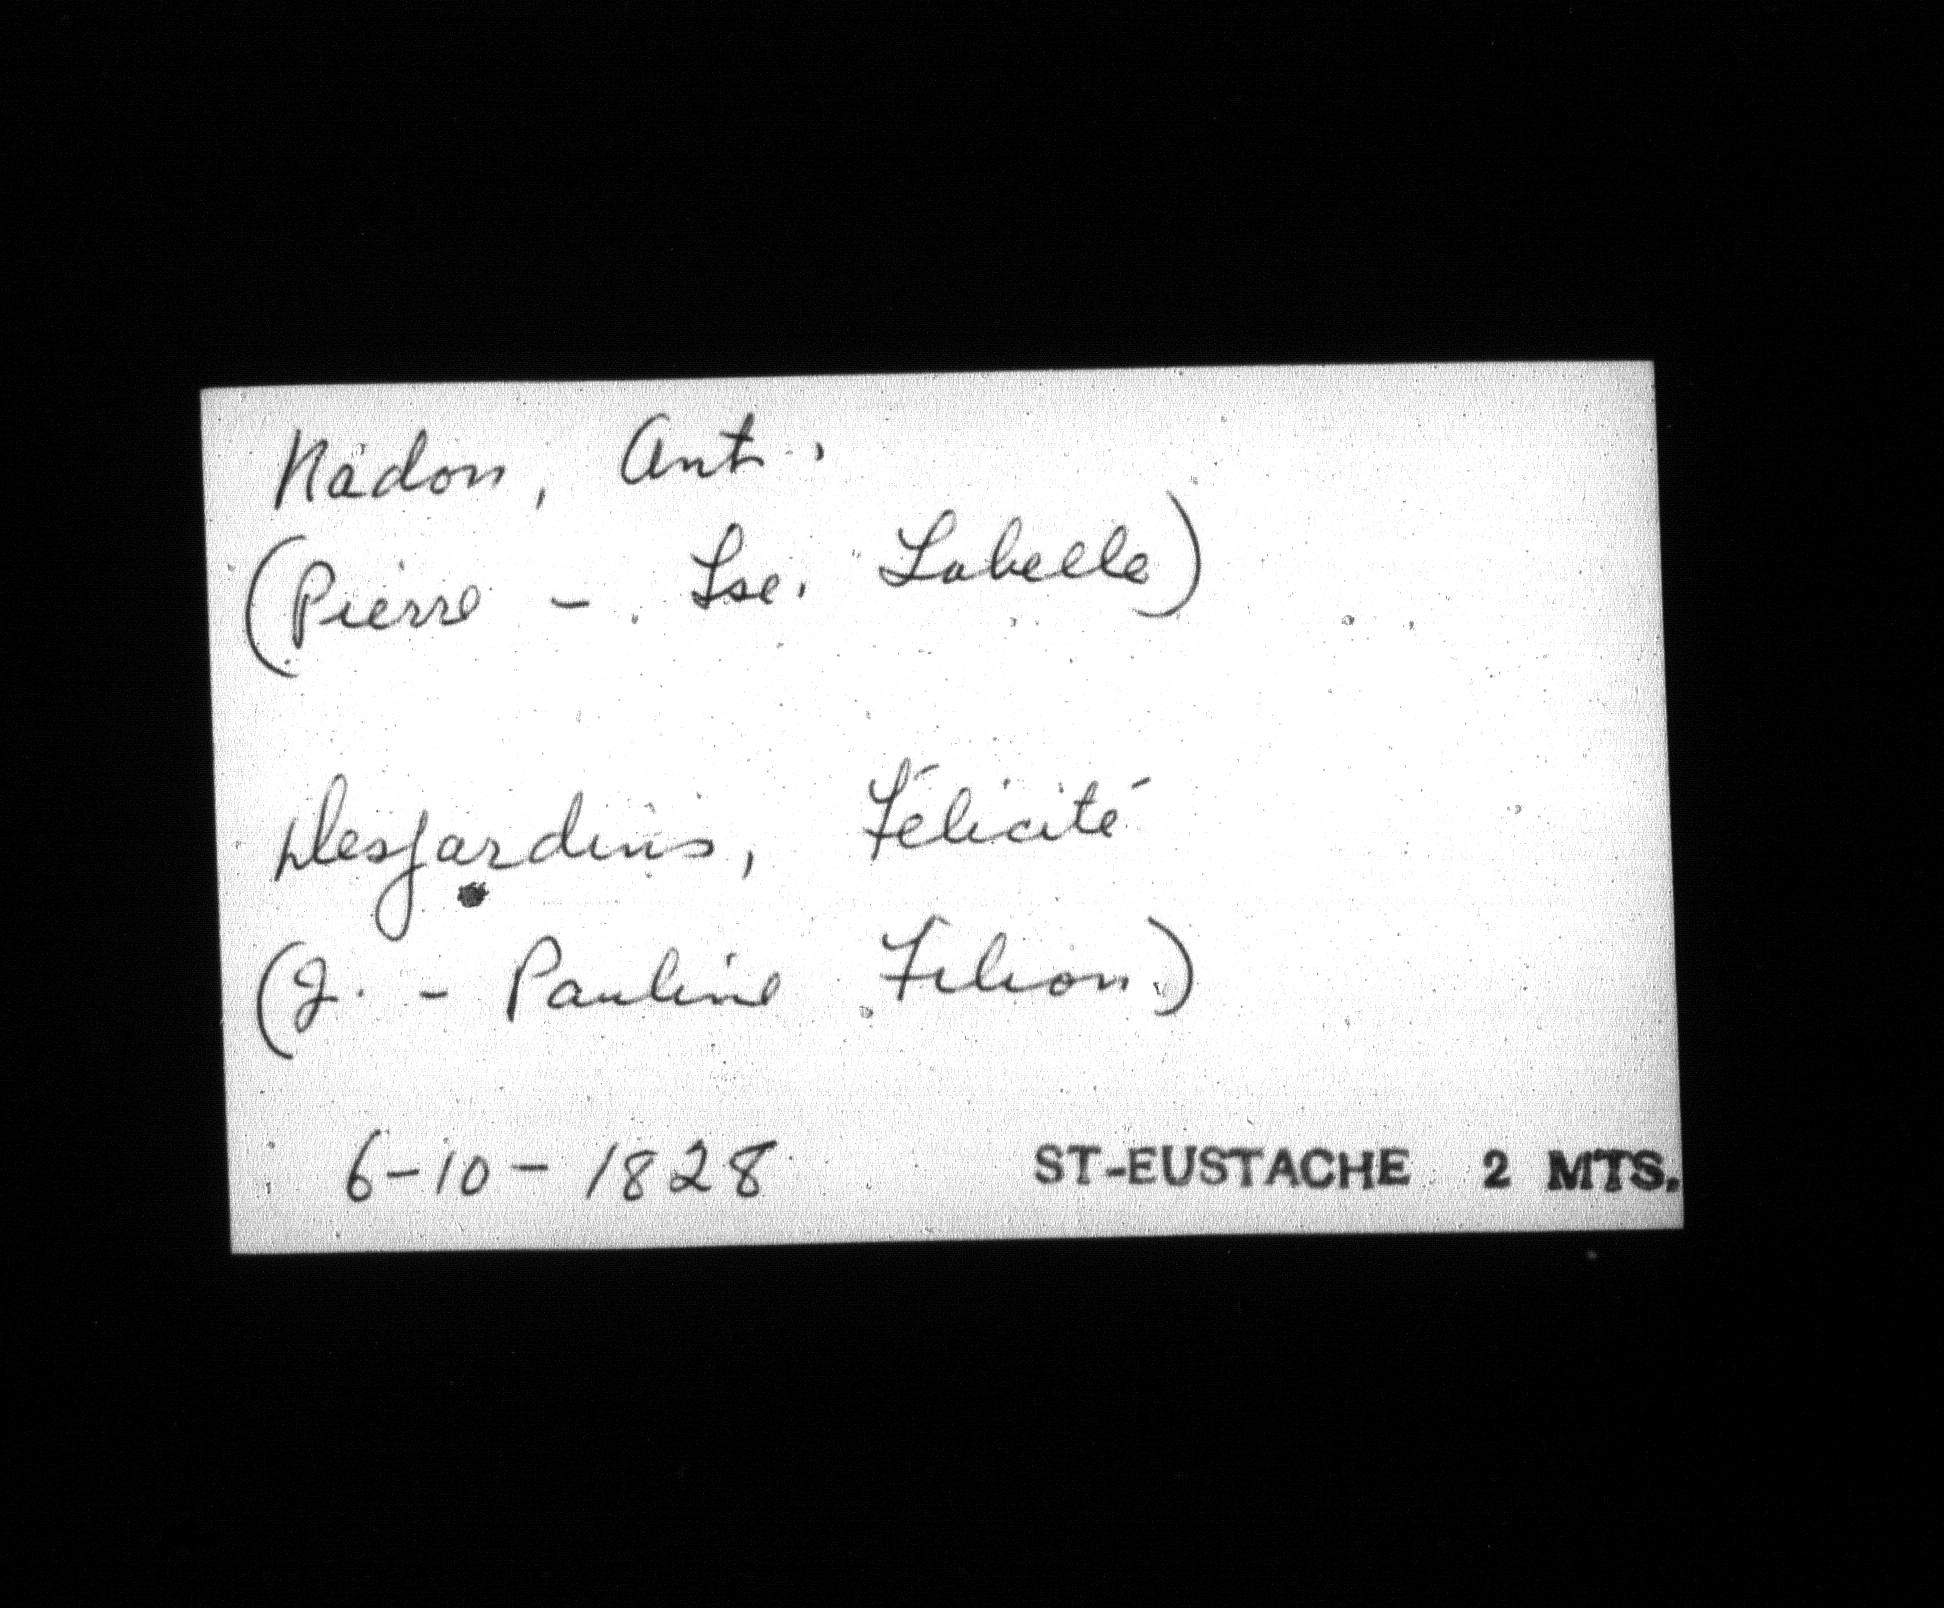 Nadon, Ant.
(Pierre - Lse. Labelle)
Desjardins, Félicité
(J. - Pauline Filion)
6-10-1828 ST-EUSTACHE 2 MTS.